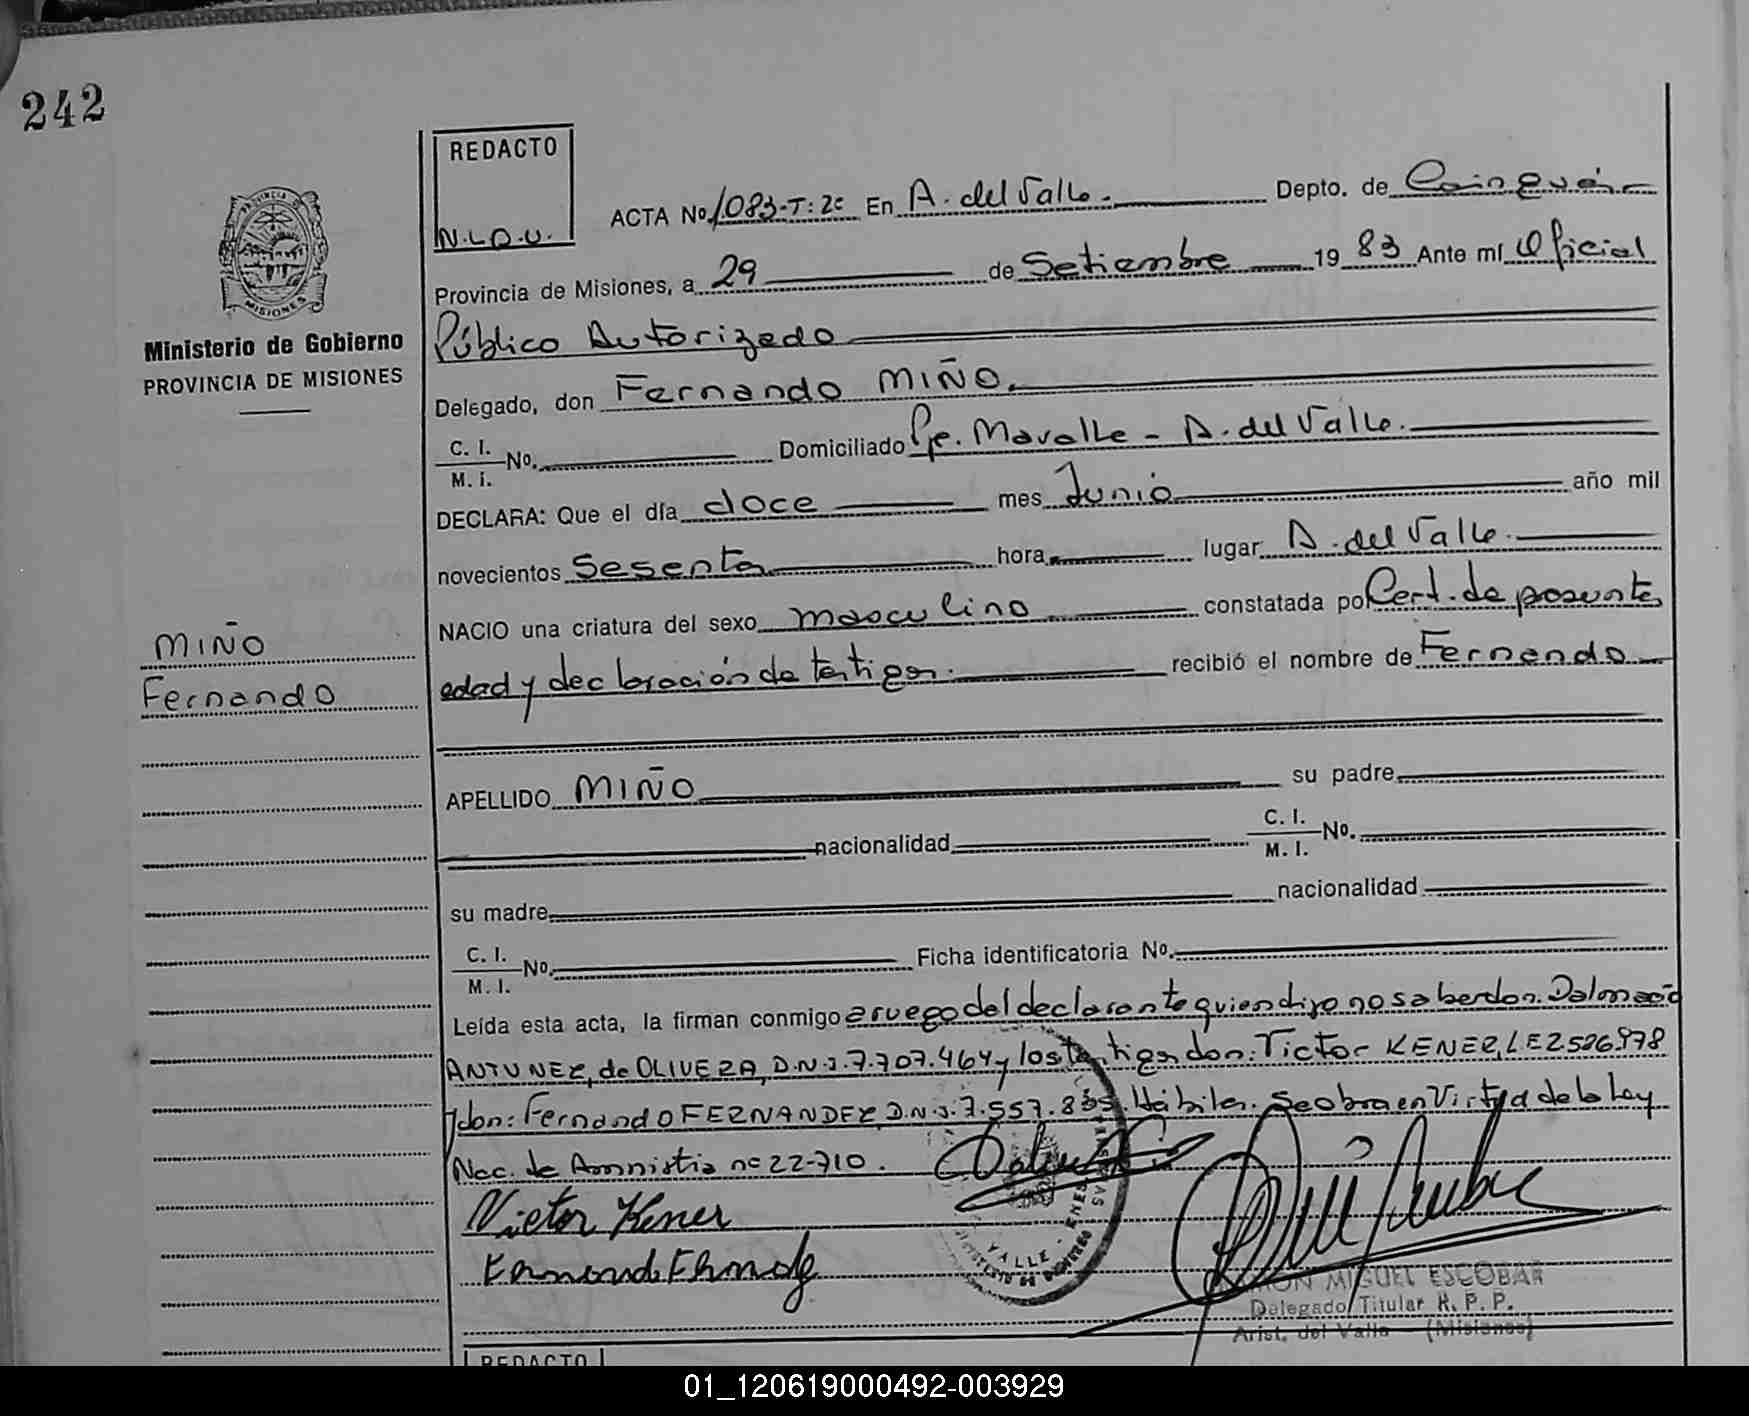 242
REDACTO
N.L.O.U.
ACTA No. 1083-T:2º En A. del Valle. Depto. de Cainguás
Provincia de Misiones, a 29 de Setiembre 1983 Ante mí Oficial
Público Autorizado
Ministerio de Gobierno
PROVINCIA DE MISIONES
Delegado, don Fernando MIÑO.
C. I.
M. I. No. Domiciliado Pje. Mavalle - A. del Valle.
DECLARA: Que el día doce mes Junio año mil
novecientos Sesenta hora lugar A. del Valle.
NACIO una criatura del sexo masculino constatada por Cert. de presunta
MIÑO
Fernando
edad y declaración de testigos. recibió el nombre de Fernando
APELLIDO MIÑO su padre
nacionalidad C. I.
M. I. No.
su madre nacionalidad
C. I.
M. I. No. Ficha identificatoria No.
Leída esta acta, la firman conmigo a ruego del declarante quien dijo no saber don. Dalmacio
ANTUNEZ, de OLIVERA, D.N.I. 7.707.464 y los testigos don: Victor KENER, LE 2586978
y don: Fernando FERNANDEZ, D.N.I. 7.557.835 Hábiles. Se obra en Virtud de la Ley
Nac. de Amnistia nº 22-710.
Victor Kener
VALLE
RAMON MIGUEL ESCOBAR
Delegado Titular R. P. P.
Arist. del Valle (Misiones)
REDACTO
01_120619000492-003929